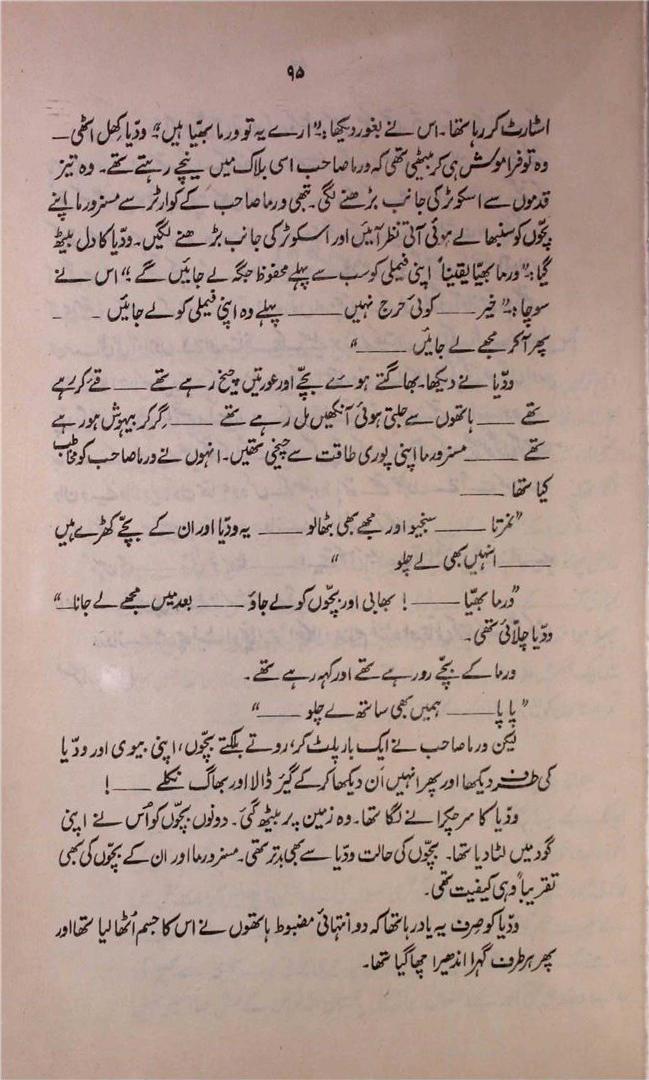 ۹۵
اسٹارٹ کر رہا تھا۔ اس نے بغور دیکھا:۔ "ارے یہ تو ورما بھیّا ہیں" ودّیا کِھل اٹھی۔
وہ تو فراموش ہی کر بیٹھی تھی کہ ورما صاحب اسی بلاک میں نیچے رہتے تھے۔ وہ تیز
قدموں سے اسکوٹر کی جانب بڑھنے لگی۔ تبھی ورما صاحب کے کوارٹر سے مسز ورما اپنے
بچّوں کو سنبھالے ہوئی آتی نظر آئیں اور اسکوٹر کی جانب بڑھنے لگیں۔ ودّیا کا دل بیٹھ
گیا:۔ "ورما بھیّا یقیناً اپنی فیملی کو سب سے پہلے محفوظ جگہ لے جائیں گے" اس نے
سوچا:۔ "خیر ـــــ کوئی حرج نہیں ـــــ پہلے وہ اپنی فیملی کو لے جائیں ـ ـ
پھر آ کر مجھے لے جائیں ـــــ"
ودّیا نے دیکھا۔ بھاگتے ہوئے بچّے اور عورتیں چیخ رہے تھے ـــــ قے کر رہے
تھے ـــــ ہاتھوں سے جلتی ہوئی آنکھیں مل رہے تھے ـــــ گِر کر بیہوش ہو رہے
تھے ـــــ مسز ورما اپنی پوری طاقت سے چیخی تھیں۔ انہوں نے ورما صاحب کو مخاطب
کیا تھا ـــــ
ـــــ سنجیو اور مجھے بھی بٹھالو ـــــ یہ ودّیا اور ان کے بچّے کھڑے ہیں
ـــــ انہیں بھی لے چلو "
"ورما بھیّا ـــــ! بھابی اور بچّوں کو لے جاؤ ـــــ بعد میں مجھے لے جانا ـ"
ودّیا چلّائی تھی۔
ورما کے بچّے رو رہے تھے اور کہہ رہے تھے۔
"پاپا ـــــ ہمیں بھی ساتھ لے چلو ـــــ"
لیکن ورما صاحب نے ایک بار پلٹ کر، روتے بلکتے بچّوں، اپنی بیوی اور ودّیا
کی طرف دیکھا اور پھر انہیں اَن دیکھا کر کے گیئر ڈالا اور بھاگ نکلے ـــــ!
ودّیا کا سر چکرانے لگا تھا۔ وہ زمین پر بیٹھ گئی۔ دونوں بچّوں کو اُس نے اپنی
گود میں لٹا دیا تھا۔ بچّوں کی حالت ودّیا سے بھی بدتر تھی۔ مسز ورما اور ان کے بچّوں کی بھی
تقریباً وہی کیفیت تھی۔
ودّیا کو صِرف یہ یاد رہا تھا کہ دو انتہائی مضبوط ہاتھوں نے اس کا جسم اُٹھا لیا تھا اور
پھر ہر طرف گہرا اندھیرا چھا گیا تھا۔